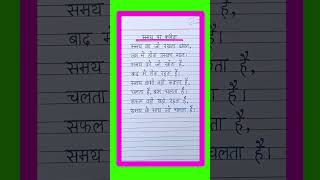 समय पर कविता
समय का जो रखता ध्यान,
जग में होता उसका मान।
समय को जो खोता है,
बाद में रोता रहता है।
समय कभी नहीं रुकता है,
चलता है, बस चलता है।
सफल वही रहता है,
समय के साथ जो चलता है।
समय है,
बाद में है।
समय है,
चलता है।
सफल है,
समय चलता है।